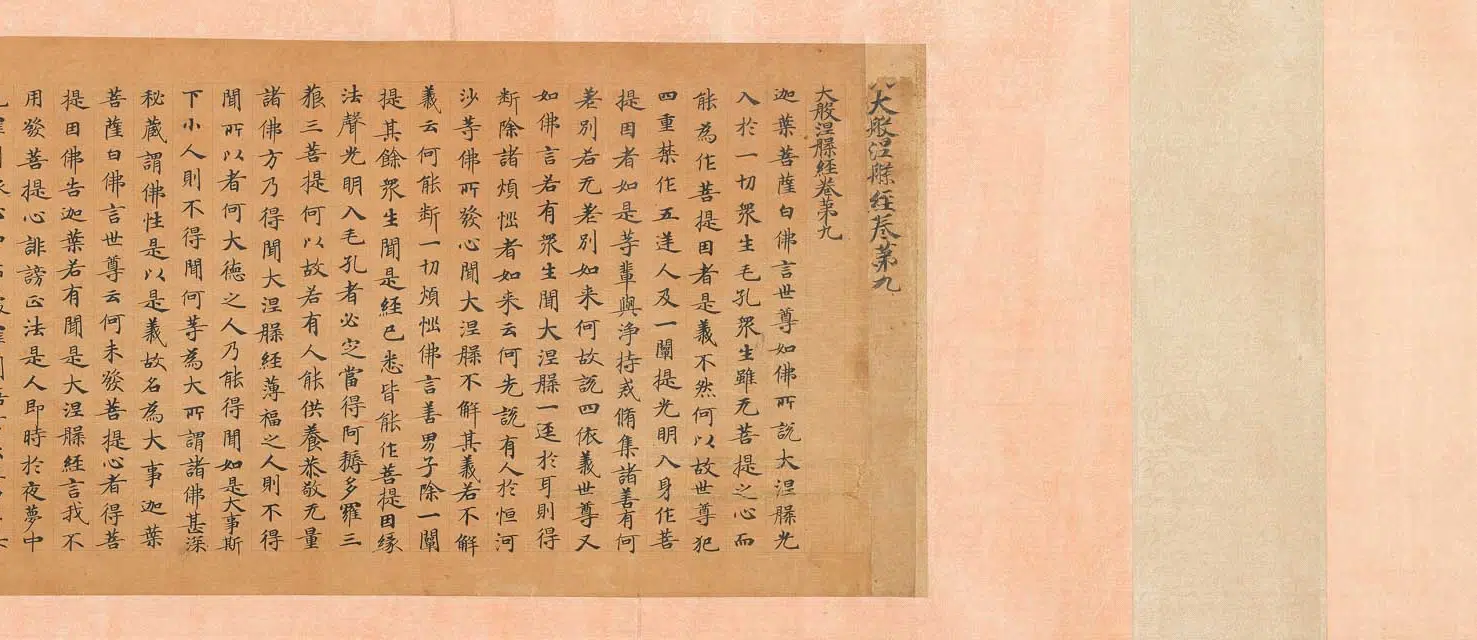 大般涅槃經卷第九
大般涅槃經卷第九
迦葉菩薩白佛言世尊如佛所說大涅槃光
入於一切衆生毛孔衆生雖无菩提之心而
能為作菩提因者是義不然何以故世尊犯
四重禁作五逆人及一闡提光明入身作菩
提因者如是等輩與淨持戒脩集諸善有何
差別若无差別如来何故說四依義世尊又
如佛言若有衆生聞大涅槃一逕於耳則得
斷除諸煩惱者如来云何先說有人於恒河
沙等佛所發心聞大涅槃不解其義若不解
義云何能斷一切煩惱佛言善男子除一闡
提其餘衆生聞是經已悉皆能作菩提因緣
法聲光明入毛孔者必定當得阿耨多羅三
藐三菩提何以故若有人能供養恭敬无量
諸佛方乃得聞大涅槃經薄福之人則不得
聞所以者何大德之人乃能得聞如是大事斯
下小人則不得聞何等為大所謂諸佛甚深
秘藏謂佛性是以是義故名為大事迦葉
菩薩白佛言世尊云何未發菩提心者得菩
提因佛告迦葉若有聞是大涅槃經言我不
用發菩提心誹謗正法是人即時於夜夢中